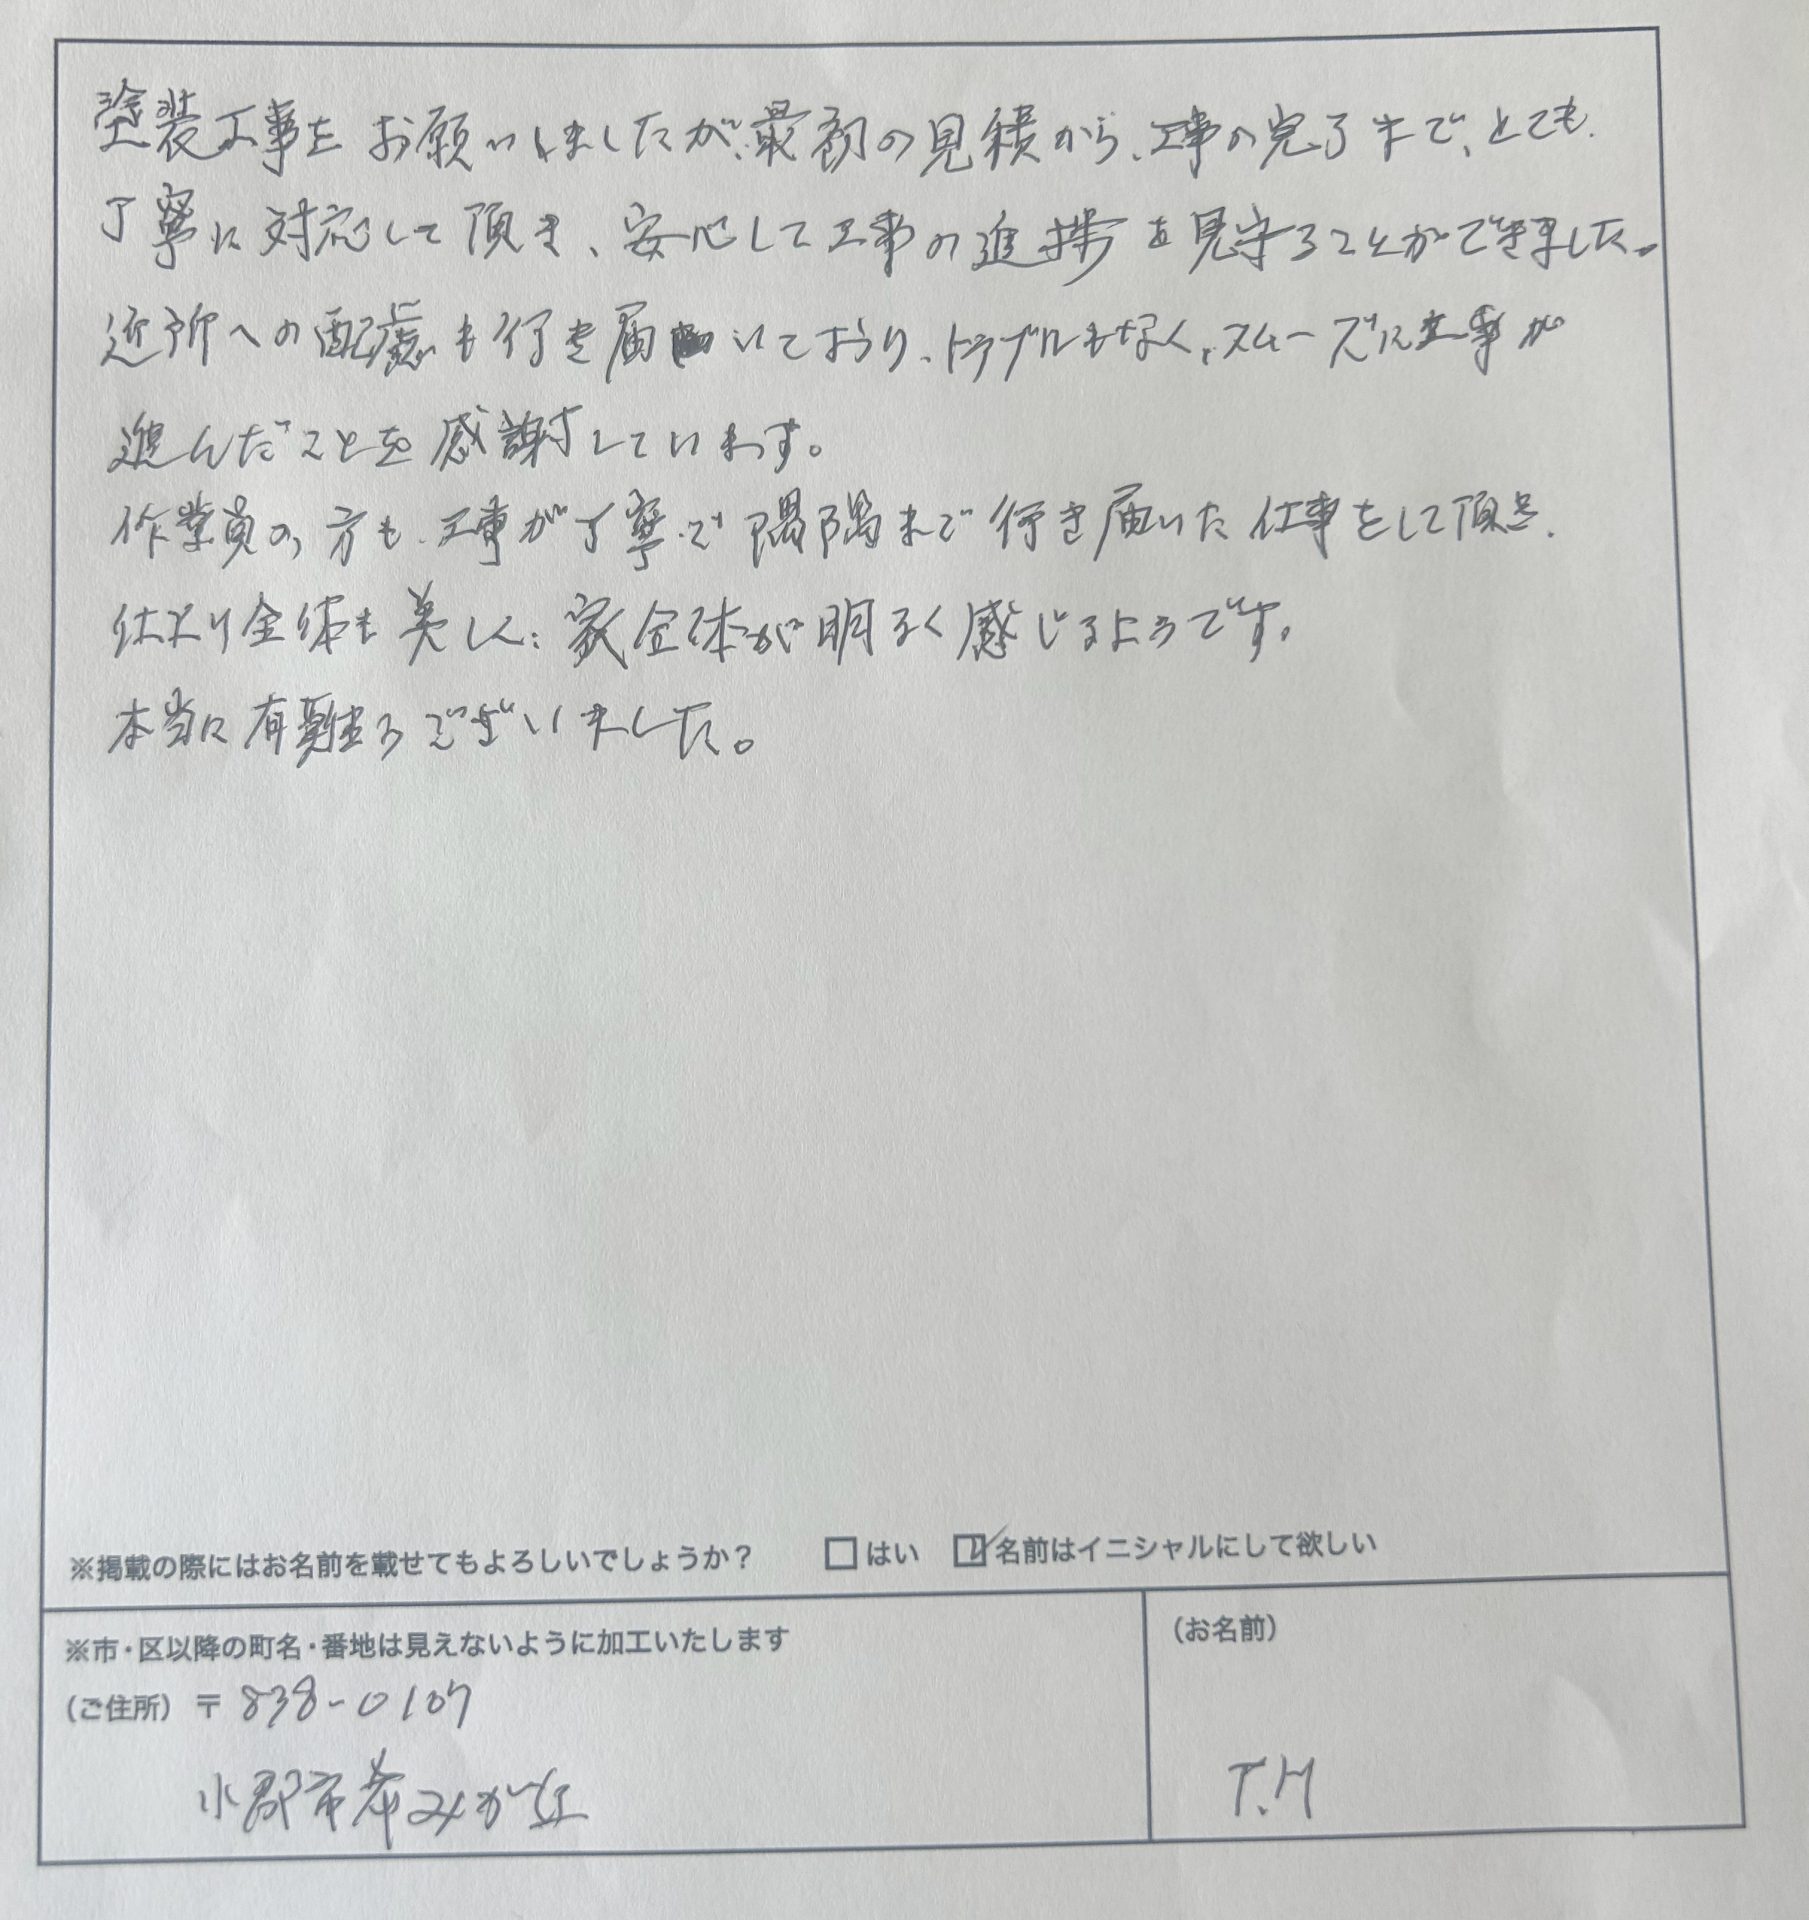 塗装工事をお願いしましたが、最初の見積から、工事の完了まで、とても
丁寧に対応して頂き、安心して工事の進捗を見守ることができました。
近所への配慮も行き届いており、トラブルもなく、スムーズに工事が
進んだことを感謝しています。
作業員の方も、工事が丁寧で隅隅まで行き届いた仕事をして頂き、
仕上り全体も美しく、家全体が明るく感じるようです。
本当に有難うございました。
※掲載の際にはお名前を載せてもよろしいでしょうか？ □はい ☑名前はイニシャルにして欲しい
※市・区以降の町名・番地は見えないように加工いたします
（ご住所）〒838-0107
小郡市希みが丘
（お名前）
T.H